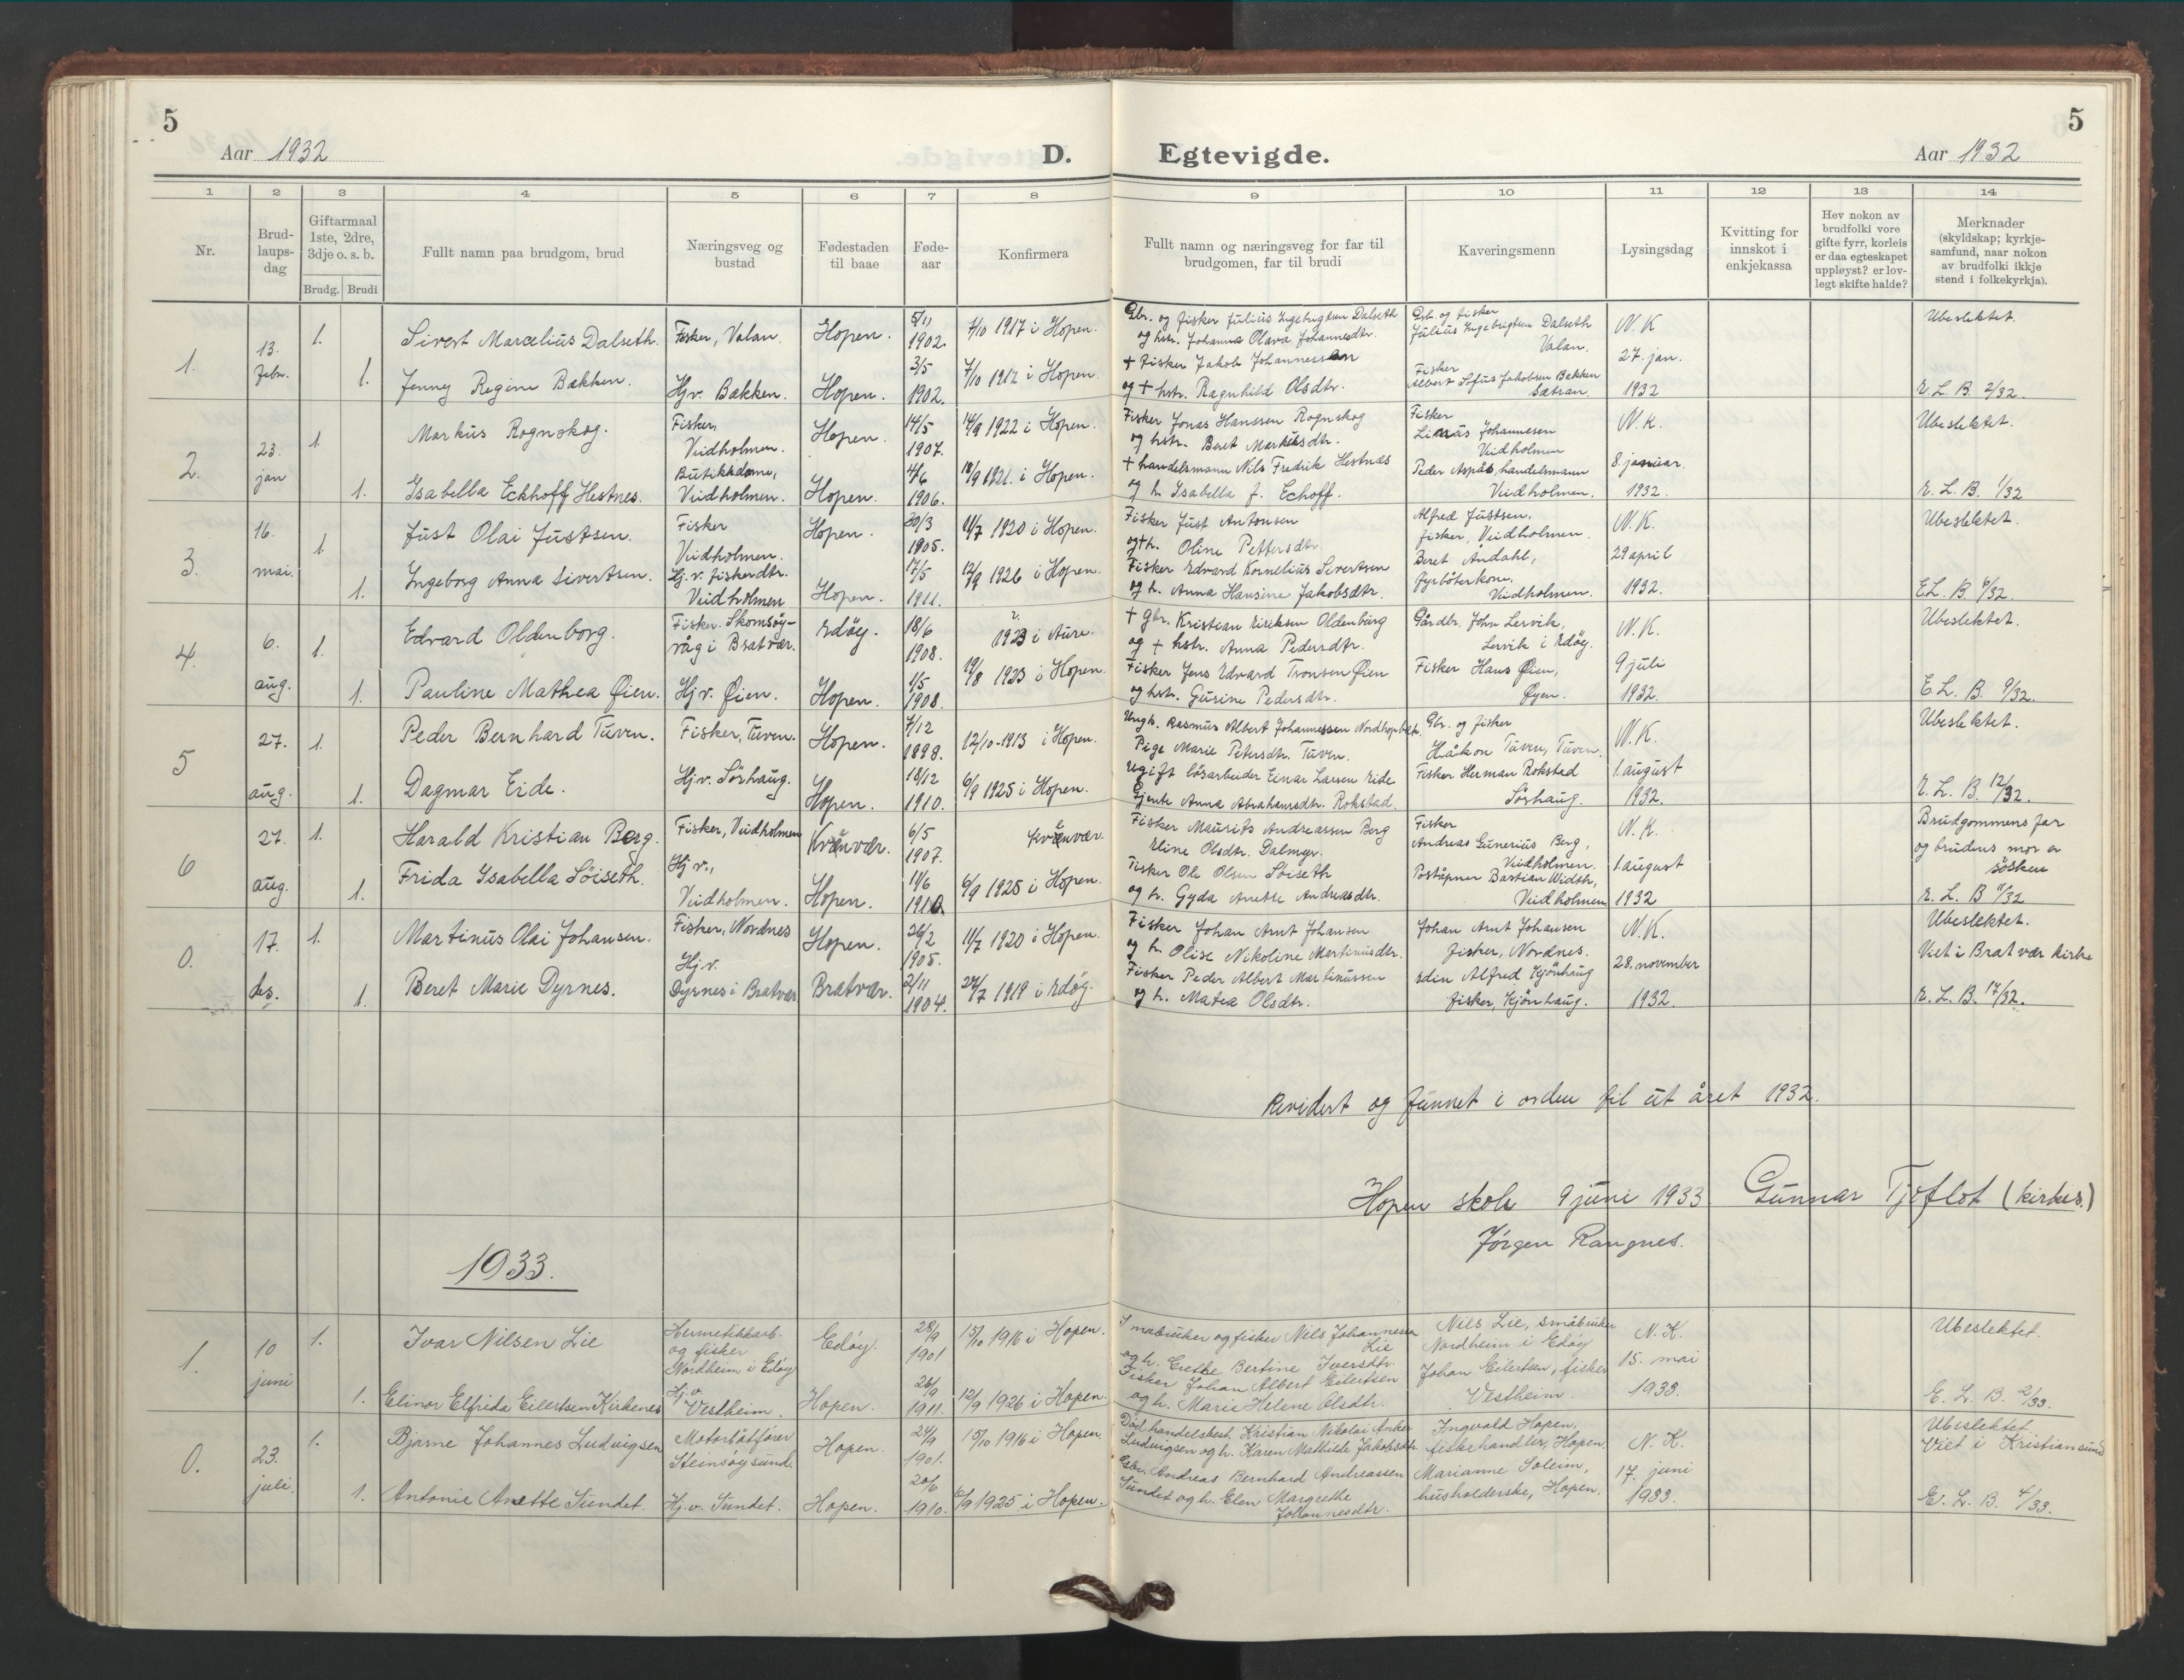 5
5
Aar 1932
D. Egtevigde.
Aar 1932
1 2 3 4 5 6 7 8 9 10 11 12 13 14
Nr.
Brud-
laups-
dag
Giftarmaal
1ste, 2dre,
3dje o. s. b.
Brudg. Brudi
Fullt namn paa brudgom, brud
Næringsveg og
bustad
Fødestaden
til baae
Føde-
aar
Konfirmera
Fullt namn og næringsveg for far til
brudgomen, far til brudi
Kaveringsmenn
Lysingsdag
Kvitting for
innskot i
enkjekassa
Hev nokon av
brudfolki vore
gifte fyrr, korleis
er daa egteskapet
uppløyst? er lov-
legt skifte halde?
Merknader
(skyldskap; kyrkje-
samfund, naar nokon
av brudfolki ikkje
stend i folkekyrkja).
1.
13.
febr.
1.
Sivert Marcelius Dalseth.
Fisker, Valan.
Hopen.
5/11
1902.
7/10 1917 i Hopen.
Gbr. og fisker Julius Ingebrigtsen Dalseth
og hstr. Johanna Olava Johannesdtr.
Gbr. og fisker
Julius Ingebrigtsen Dalseth
Valan.
N. K
27. jan.
1932
Ubeslektet.
1.
Jenny Regine Bakken.
Hjv. Bakken.
Hopen.
3/5
1902.
7/10 1917 i Hopen.
+ Fisker Jakob Johannessen
og + hstr. Ragnhild Olsdtr.
Fisker
Albert Sofus Jakobsen Bakken
Sætran.
E. L. B. 2/32.
2.
23.
jan
1.
Markus Rognskog.
Fisker,
Veidholmen.
Hopen.
14/5
1907.
14/9 1922 i Hopen.
Fisker Jonas Hanssen Rognskog
og hstr. Beret Markusdtr.
Fisker
Linus Johannesen
Veidholmen
N. K.
8. januar.
1932.
Ubeslektet.
1.
Isabella Eckhoff Hestnes.
Butikkdame,
Veidholmen.
Hopen.
4/6
1906.
18/9 1921. i Hopen.
+ handelsmann Nils Fredrik Hestnæs
og h. Isabella f. Echoff.
Peder Aspås, handelsmann
Veidholmen.
E. L. B. 1/32
3.
16.
mai.
1.
Just Olai Justsen.
Fisker
Veidholmen.
Hopen.
30/3
1905.
11/7 1920 i Hopen.
Fisker Just Antonsen
og+h. Oline Pettersdtr
Alfred Justsen,
fisker, Veidholmen.
N. K.
29 april
1932.
Ubeslektet.
1.
Ingeborg Anna Sivertsen.
Hj. v. fiskerdtr.
Veidholmen
Hopen.
17/5
1911.
12/9 1926 i Hopen.
Fisker Edvard Kornelius Sivertsen
og h. Anna Hansine Jakobsdtr.
Beret Andahl,
fyrbøterkone,
Veidholmen.
E.L. B. 6/32.
4.
6.
aug.
1.
Edvard Oldenborg.
Fisker. Skomsøy-
våg i Bratvær.
Edöy.
18/6
1908.
?
1923 i Aure.
+ gbr. Kristian Eriksen Oldenburg
og + hstr. Anna Pedersdtr.
Gårdbr. John Lervik,
Lervik i Edöy.
N. K.
9 juli
1932.
Ubeslektet.
1.
Pauline Mathea Øien.
Hj v. Øien.
Hopen.
1/5
1908.
19/8 1923 i Hopen.
Fisker Jens Edvard Tronsen Øien
og hstr. Gurine Pedersdtr.
Fisker Hans Øien,
Øyen.
E. L. B. 9/32.
5
27.
aug.
1.
Peder Bernhard Tuven.
Fisker, Tuven.
Hopen.
7/12
1898.
12/10-1913 i Hopen.
Ungk. Rasmus Albert Johannessen
Pige Marie Petersdtr. Tuven.
Gbr. og fisker
Håkon Tuven, Tuven.
N. K.
1. august
1932.
Ubeslektet.
1.
Dagmar Eide.
Hj v. Sörhaug.
Hopen.
18/12
1910.
6/9 1925 i Hopen.
Ugift lösarbeider Einar Larsen Eide
Gjente Anna Abrahamsdtr. Rokstad.
Fisker Herman Rokstad
Sörhaug.
E. L. B. 12/32.
6
27.
aug.
1.
Harald Kristian Berg.
Fisker, Veidholmen
Kvenvær.
6/5
1907.
Kvenvær.
Fisker Maurits Andreassen Berg
Eline Olsdtr. Dalmyr.
Fisker
Andreas Gunerius Berg,
Veidholmen.
N. K.
1 august
1932
Brudgommens far
og brudens mor er
sösken
1.
Frida Isabella Söiseth.
Hj v.,
Veidholmen.
Hopen.
11/6
1910.
6/9 1925 i Hopen.
Fisker Ole Olsen Söiseth
og h. Gyda Anette Andreasdtr.
Poståpner Bastian Width,
Veidholmen
E. L. B 9/32
0.
17.
des.
1.
Martinus Olai Johansen.
Fisker, Nordnes
Hopen.
26/2
1905.
11/7 1920 i Hopen.
Fisker Johan Arnt Johansen
og h. Olise Nikoline Martinusdtr.
Johan Arnt Johansen
fisker, Nordnes.
N. K.
28. november
1932.
Ubeslektet.
Viet i Bratvær kirke
1.
Beret Marie Dyrnes.
Hj. v.
Dyrnes i Bratvær
Bratvær.
2/11
1904.
27/7 1919 i Edöy.
Fisker Peder Albert Martinussen
og h. Matea Olsdtr.
Edin Alfred Kjönhaug
fisker, Kjönhaug.
E. L. B. 17/32.
Revidert og funnet i orden til ut året 1932.
Hopen skole 9 juni 1933 Gunnar Tjoflot (kirkes.)
Jörgen Rangnes.
1933.
1.
10
juni
1.
Ivar Nilsen Lie
Hermetikkarb.
og fisker
Nordheim i Edöy
Edöy.
28/9
1901
15/10 1916 i Hopen.
Småbruker og fisker Nils Johannessen
Lie
og h. Grethe Bertine Iversdtr.
Nils Lie, småbruker
Nordheim i Edöy
N. K.
15. mai
1933.
Ubeslektet.
1.
Elinor Elfrida Eilertsen Kirkenes
Hj. v.
Vestheim.
Hopen.
26/9
1911.
12/9 1926 i Hopen.
Fisker Johan Albert Eilertsen
og h. Marie Helene Olsdtr.
Johan Eilertsen, fisker
Vestheim.
E. L. B. 2/33.
0.
23.
juli.
1.
Bjarne Johannes Ludvigsen
Motorbåtfører
Steinsöysund.
Hopen.
24/9
1901.
15/10 1916 i Hopen
Död handelsbest. Kristian Nikolai Anker
Ludvigsen og h. Karen Mathilde Jakobsdtr.
Ingvald Hopen,
fiskehandler, Hopen.
N. K.
17. juni
1933.
Ubeslektet
Viet i Kristiansund
1.
Antonie Anette Sundet.
Hj. v. Sundet.
Hopen.
20/6
1910.
6/9 1925 i Hopen.
Gbr. Andreas Bernhard Andreassen
Sundet og h. Elen Margrethe
Johannesdtr.
Marianne Soleim,
husholderske, Hopen.
E. L. B. 4/33.